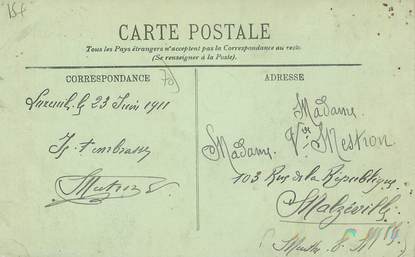 154
CARTE POSTALE
Tous les Pays étrangers n'acceptent pas la Correspondance au recto.
(Se renseigner à la Poste).
CORRESPONDANCE
ADRESSE
23 Juin 1911
Je t'embrasse
Madame
Madame Vve Mestion
103 Rue de la République
Malzéville